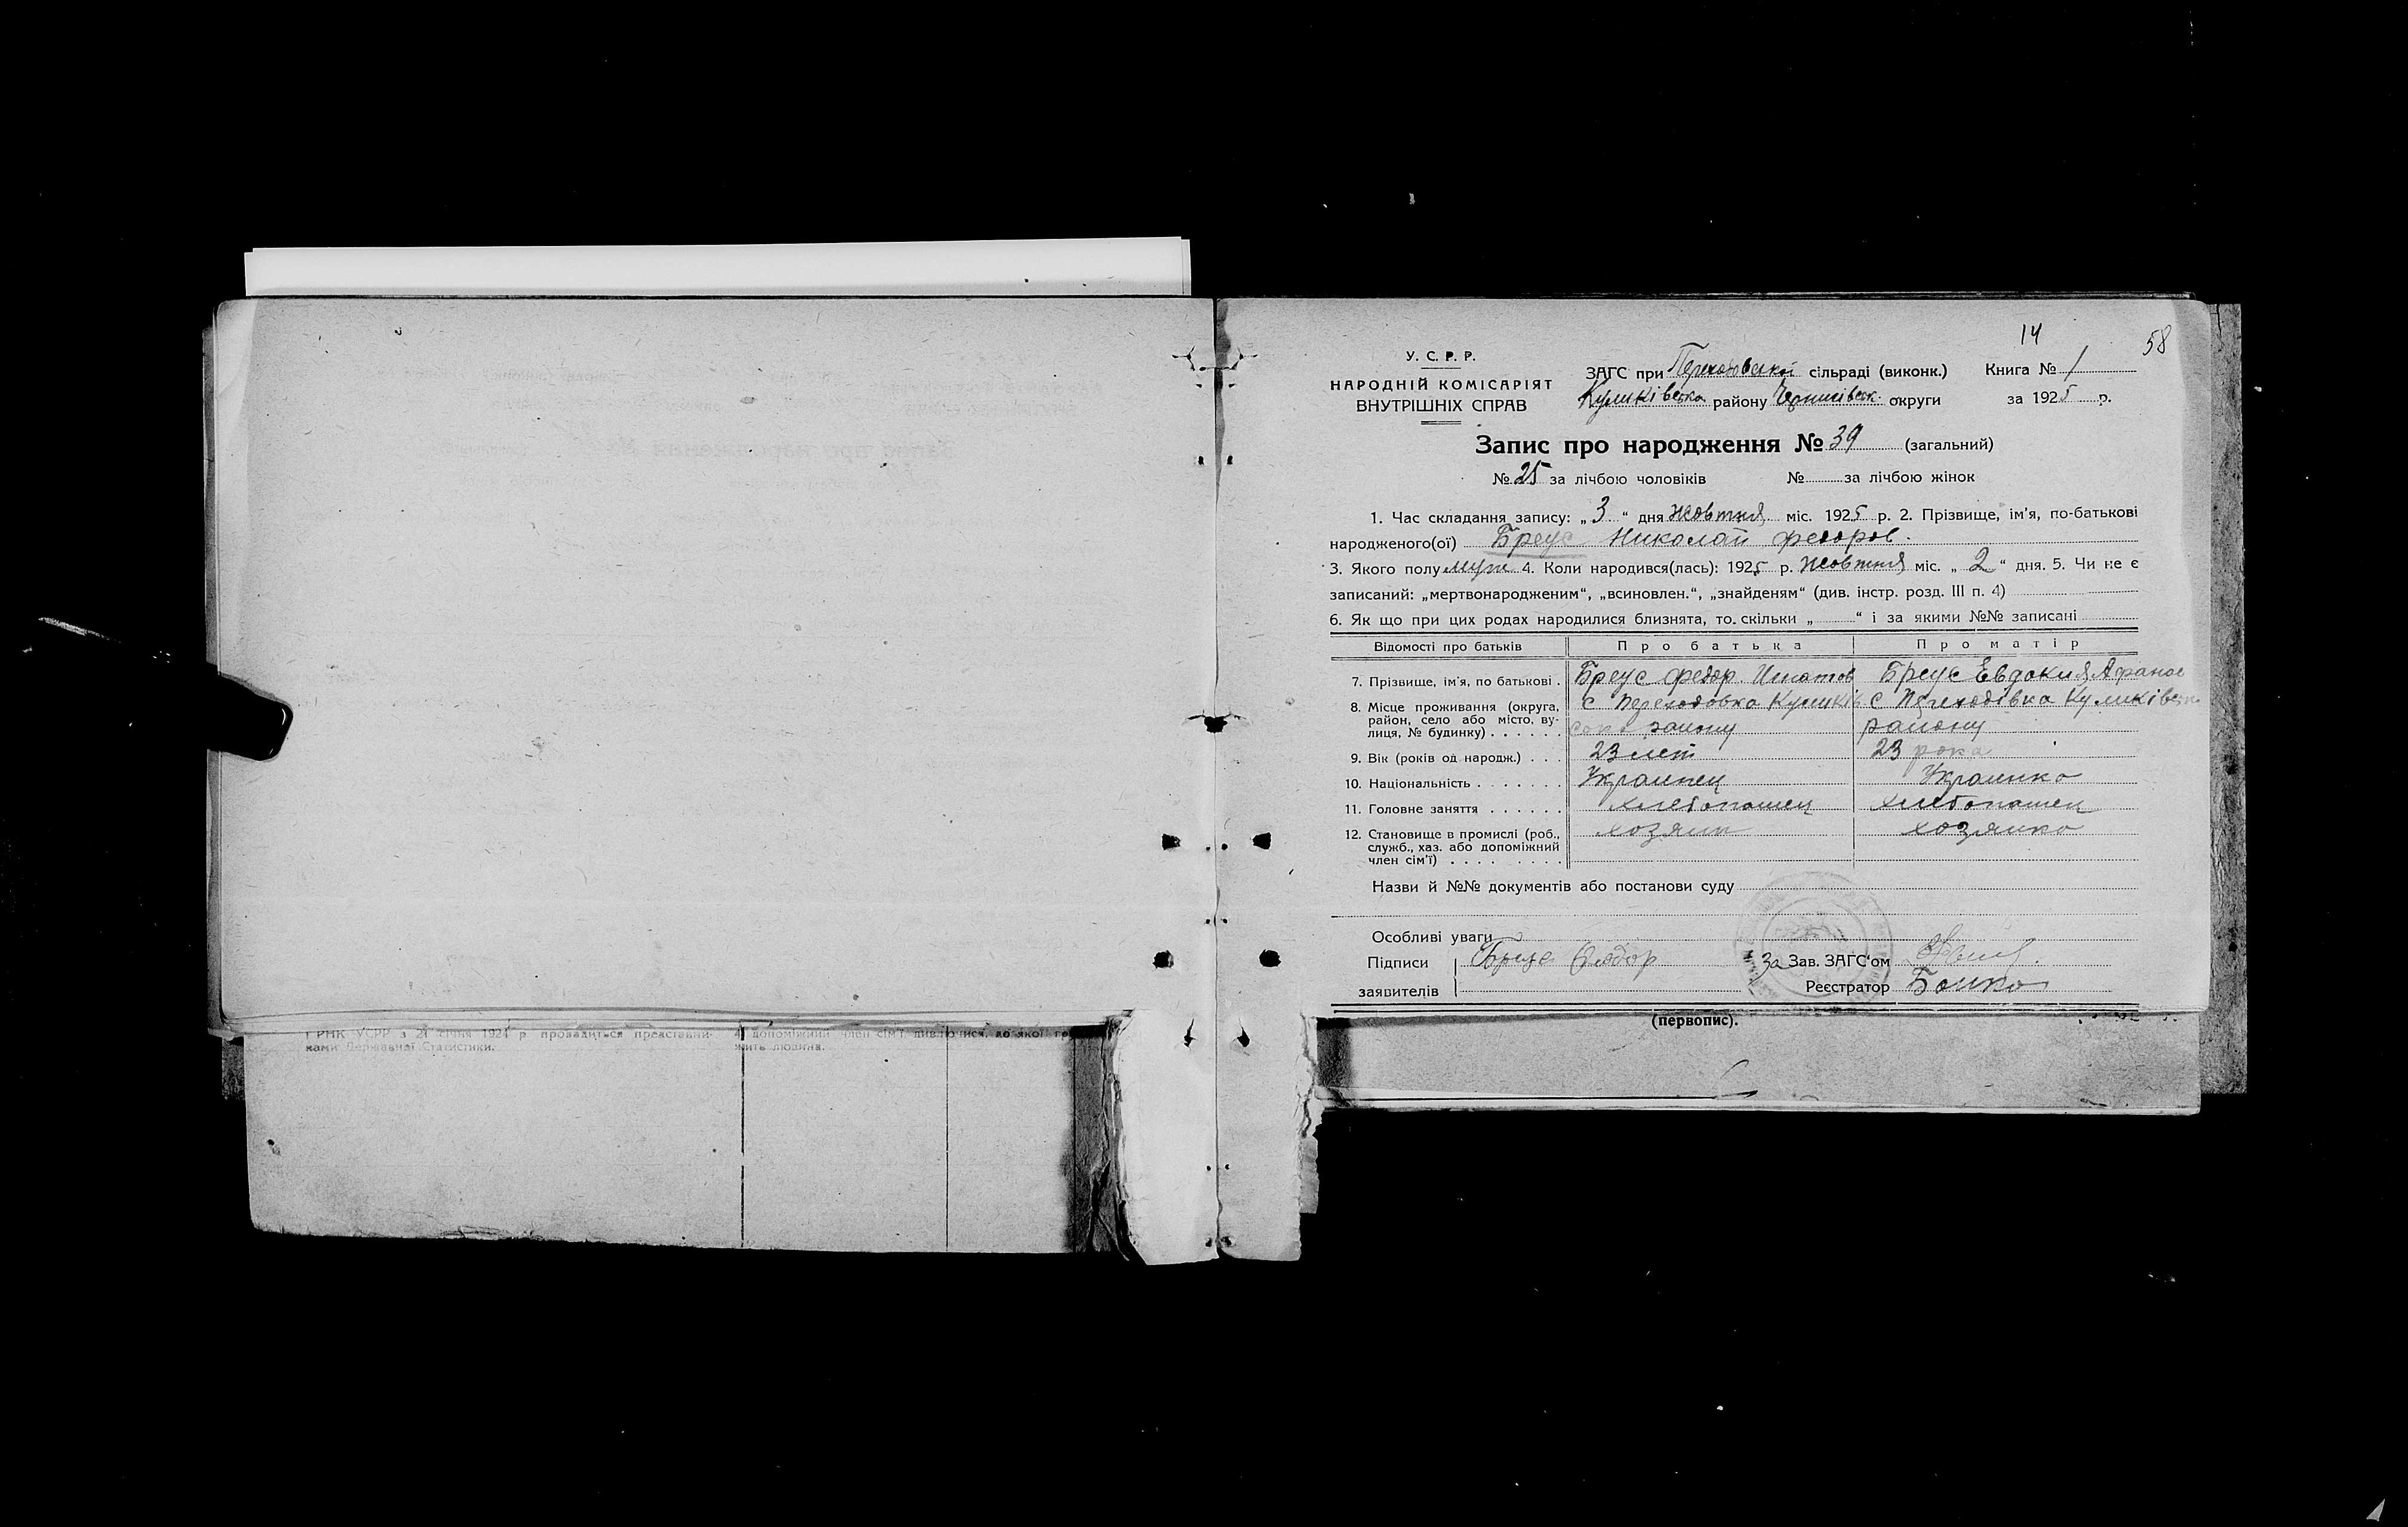 14
58
У. С. Р. Р.
НАРОДНІЙ КОМІСАРІЯТ
ВНУТРІШНІХ СПРАВ
ЗАГС при Переходовской сільраді (виконк.)
Куликівська району Чернигівськ. округи
Книга № 1
за 1925 р.
Запис про народження № 39 (загальний)
№ 25 за лічбою чоловіків № за лічбою жінок
1. Час складання запису: „ 3 “ дня жовтня міс. 1925 р. 2. Прізвище, ім'я, по-батькові
народженого(ої) Бреус Николай федоров.
3. Якого полу муж 4. Коли народився(лась): 1925 р. жовтня міс. „ 2 “ дня. 5. Чи не є
записаний: „мертвонародженим“, „всиновлен.“, „знайденям“ (див. інстр. розд. III п. 4)
6. Як що при цих родах народилися близнята, то. скільки „ “ і за якими №№ записані
Відомості про батьків Про батька Про матір
7. Прізвище, ім'я, по батькові . Бреус федор Игнатов Бреус Евдокия Афанас
8. Місце проживання (округа, район, село або місто, вулиця, № будинку) . . . . . . с Переходовка Куликів с Переходівка Куликівськ
району району
9. Вік (років од народж.) . . . 23 лет 23 рока
10. Національність . . . . . . . Украинец Украинка
11. Головне заняття . . . . . . хлебопашец хлебопашец
12. Становище в промислі (роб., служб., хаз. або допоміжний член сім'ї) . . . . . . . . хозяин хозяйка
Назви й №№ документів або постанови суду
Особливі уваги
Підписи Бреус Федор За Зав. ЗАГС'ом
заявителів Реєстратор Бойко
(первопис).
РНК УСРР з 21 січня 1921 р провадиться представни-
ками Державної Статистики.
4) допоміжний член сім'ї дивлючися, до якої
жить людина.